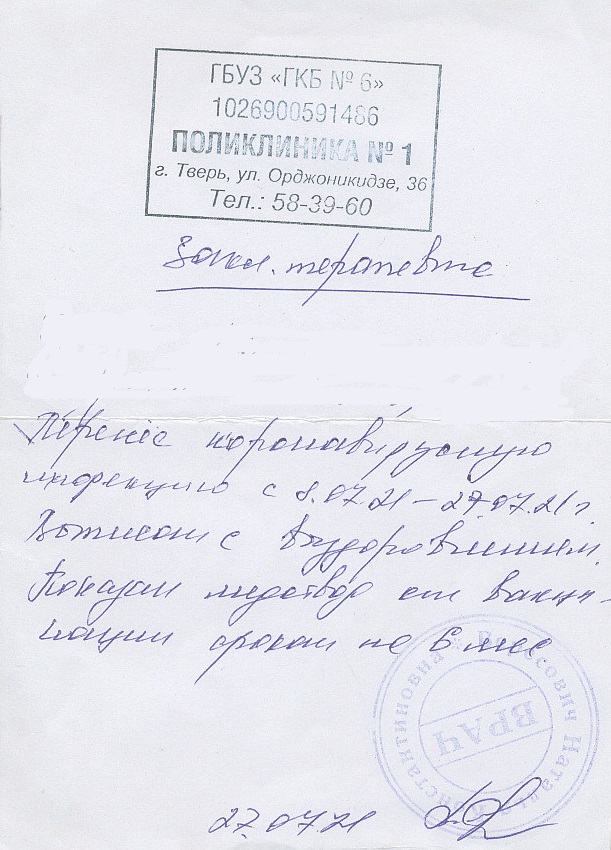 ГБУЗ «ГКБ № 6»
1026900591486
ПОЛИКЛИНИКА № 1
г. Тверь, ул. Орджоникидзе, 36
Тел.: 58-39-60
Закл. терапевта
Перенёс коронавирусную
инфекцию с 8.07.21 – 27.07.21 г.
Выписан с выздоровлением.
Показан медотвод от вакци-
нации сроком на 6 мес
Константиновна Наталья
ВРАЧ
27.07.21